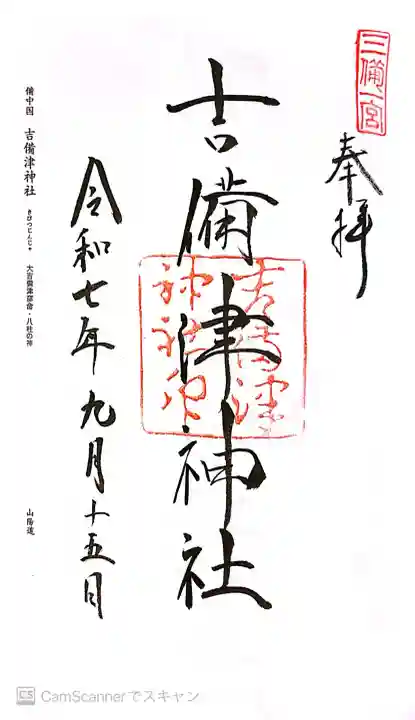 三備一宮
奉拝
吉備津神社
吉備津神社印
令和七年九月十五日
備中国 吉備津神社 きびつじんじゃ 大吉備津彦命・八柱の神 山陽道
CamScannerでスキャン